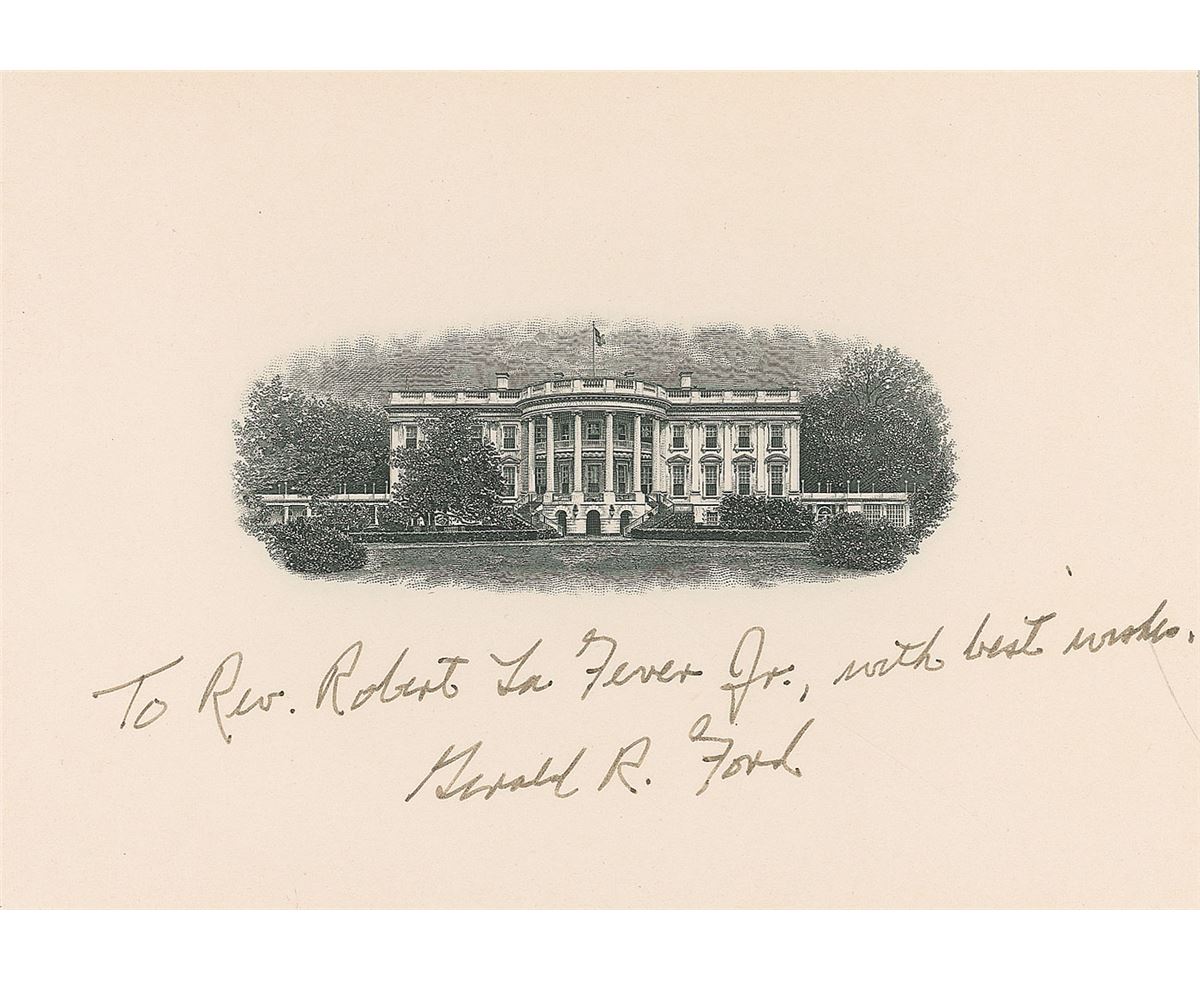 To Rev. Robert La Fever Jr., with best wishes.
Gerald R. Ford